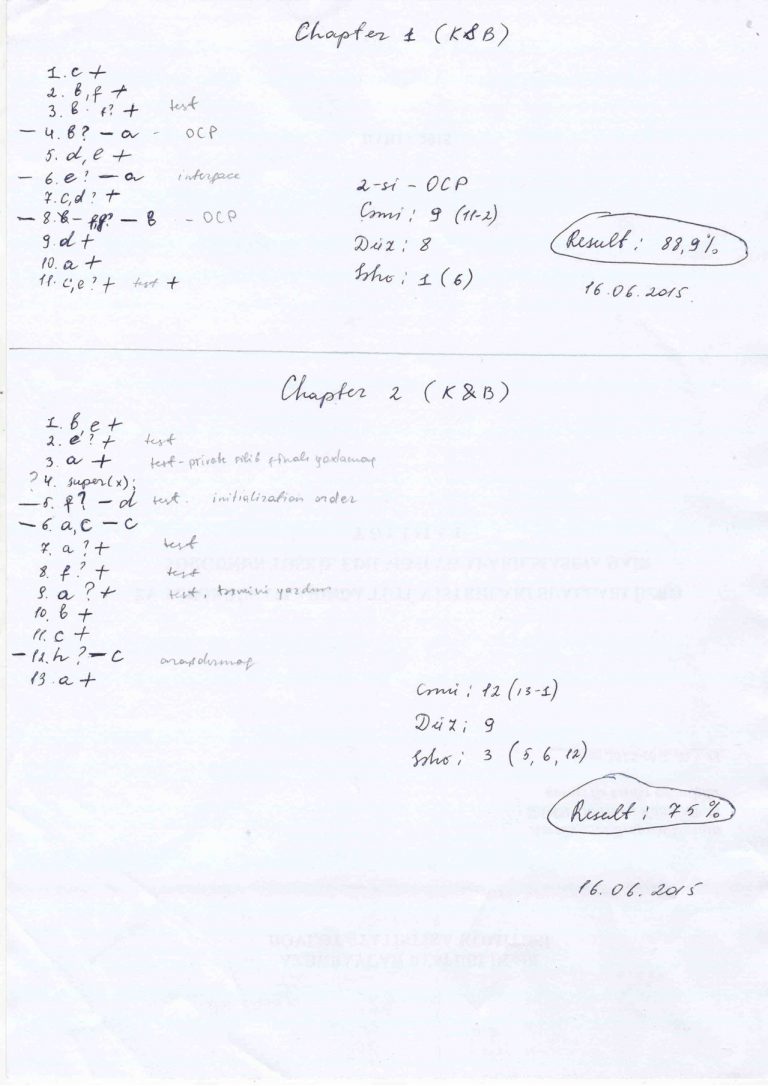 Chapter 1 (K&B)
1. c +
2. b, f +
3. b f? + test
– 4. b? – a – OCP
5. d, e +
– 6. e? – a interface
7. c, d? +
– 8. b – – b – OCP
9. d +
10. a +
11. c, e? + test +
2-si – OCP
Cəmi: 9 (11-2)
Düz: 8
Səhv: 1 (6)
Result: 88,9%
16.06.2015
Chapter 2 (K&B)
1. b, e +
2. e? + test
3. a + test - private olib finalı yoxlamaq
? 4. super(x);
– 5. f? – d test. initialization order
– 6. a, c – c
7. a? + test
8. f? + test
9. a? + test. yazdım
10. b +
11. c +
– 12. h? – c araşdırmaq
13. a +
Cəmi: 12 (13-1)
Düz: 9
Səhv: 3 (5, 6, 12)
Result: 75%
16.06.2015